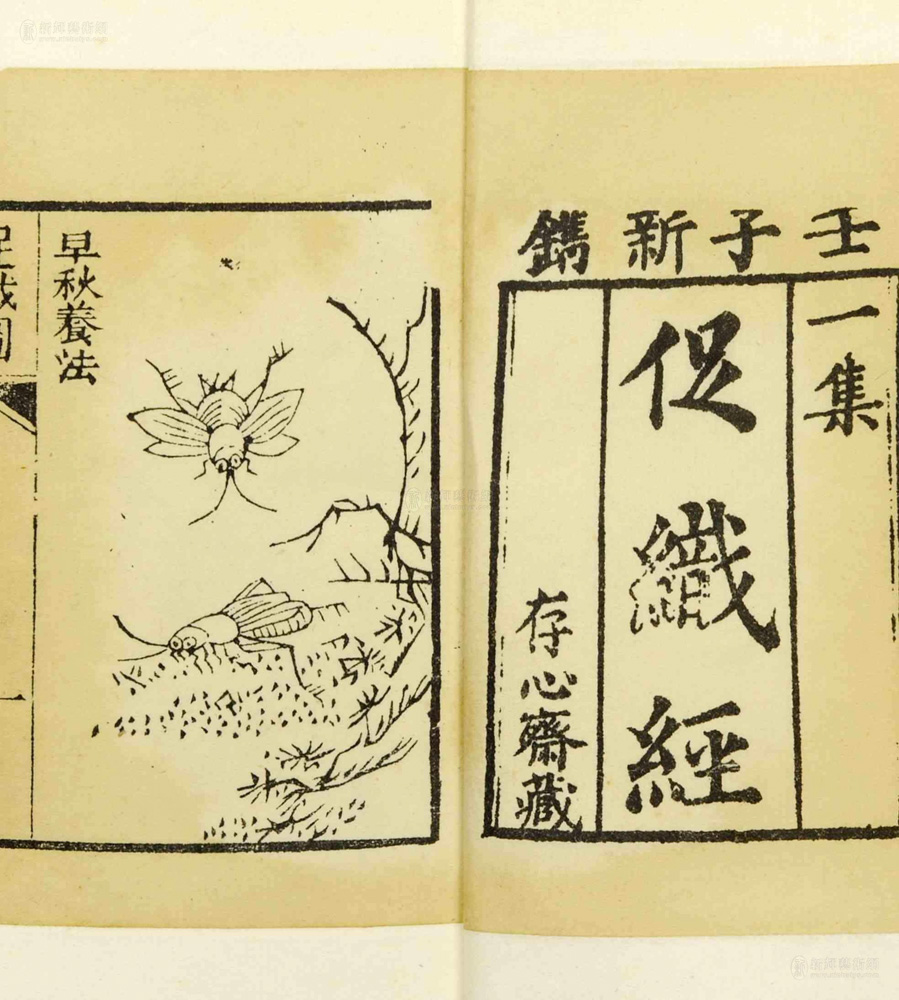 壬子新鐫
一集
促織經
存心齋藏
早秋養法